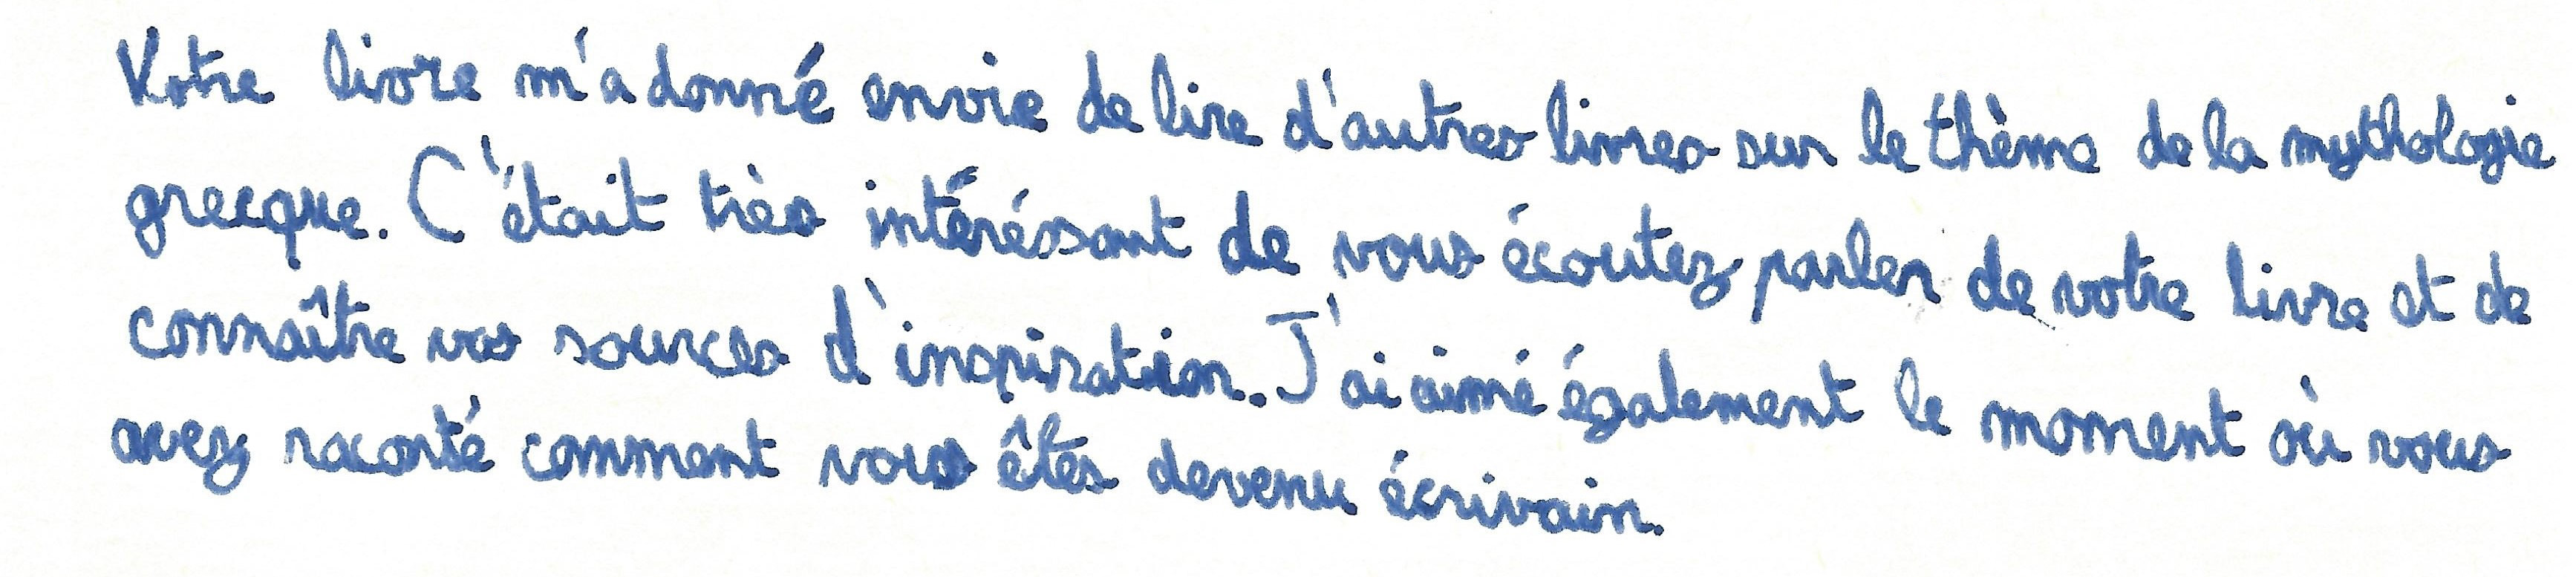 Votre livre m'a donné envie de lire d'autres livres sur le thème de la mythologie
grecque. C'était très intéréssant de vous écoutez parler de votre livre et de
connaître vos sources d'inspiration. J'ai aimé également le moment où vous
avez raconté comment vous êtes devenu écrivain.